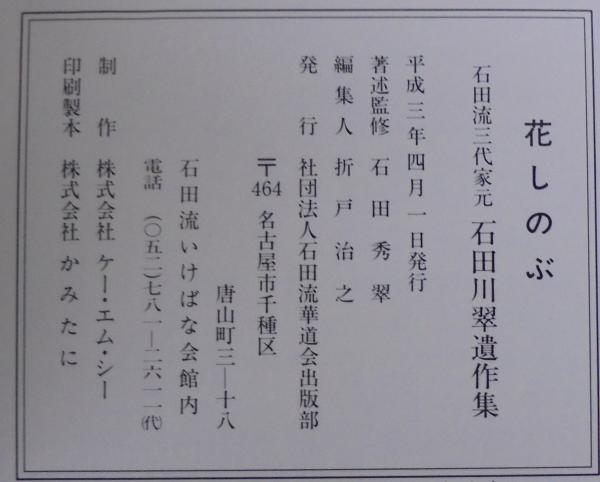 花しのぶ
石田流三代家元 石田川翠遺作集
平成三年四月一日発行
著述監修 石田秀翠
編集人 折戸治之
発行 社団法人石田流華道会出版部
〒464 名古屋市千種区
唐山町三―十八
石田流いけばな会館内
電話 (〇五二)七八一―二六一一(代)
制作 株式会社 ケー・エム・シー
印刷製本 株式会社 かみたに